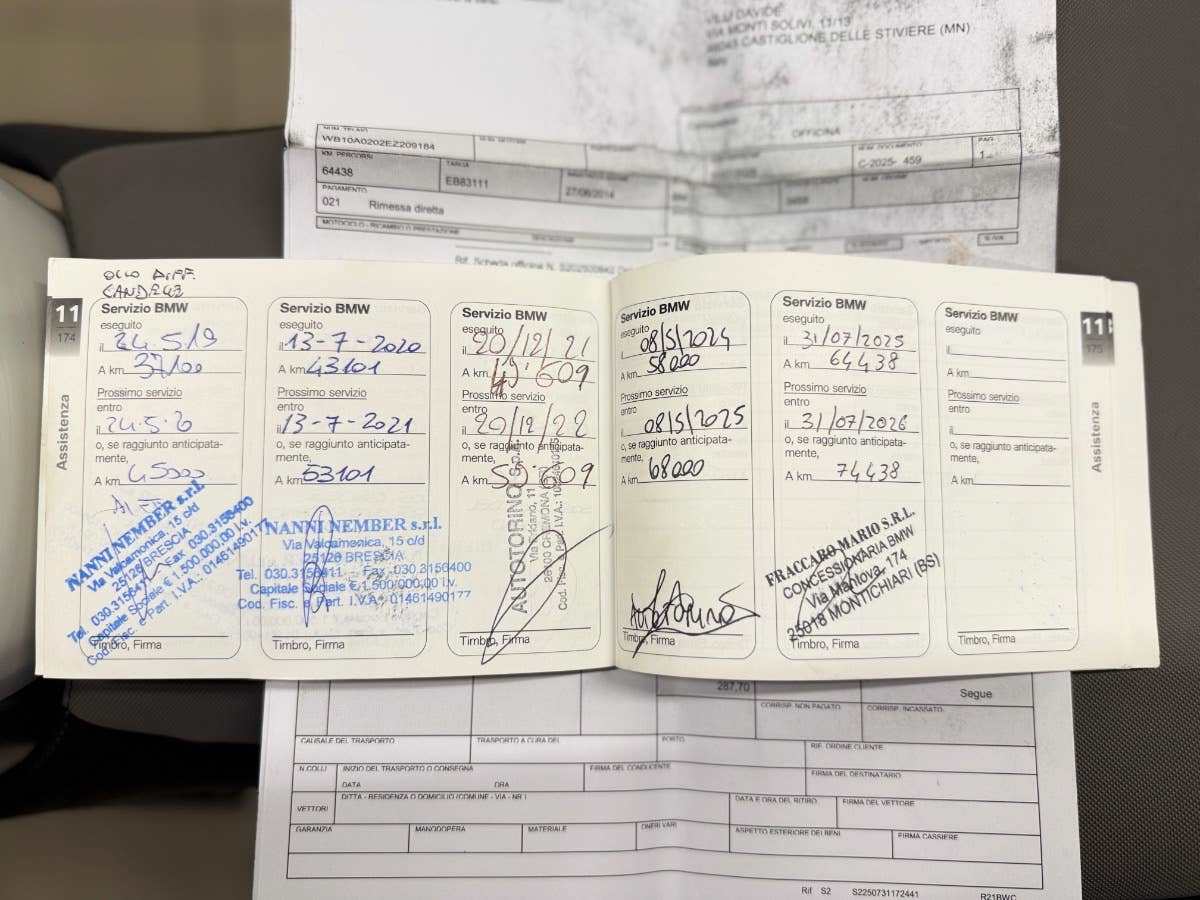 VIA MONTI SOLIVI, 11/13
CASTIGLIONE DELLE STIVIERE (MN)
OFFICINA
NUM. TELAIO
WB10A0202EZ209184
C-2025- 459
PAG.
1
KM. PERCORSI
64438
TARGA
EB83111
27/06/2014
PAGAMENTO
021 Rimessa diretta
MOTOCICLO - RICAMBIO O PRESTAZIONE
Rif. Scheda officina N.
OLIO
CANDELE
11
174
Assistenza
Servizio BMW
eseguito
il 24.5.19
A km 37100
Prossimo servizio
entro
il 24.5.20
o, se raggiunto anticipata-
mente,
A km
NANNI NEMBER s.r.l.
Via Valcamonica, 15 c/d
25126 BRESCIA
Tel. 030.3158411 - Fax 030.3156400
Capitale Sociale € 1.500.000,00 i.v.
Cod. Fisc. e Part. I.V.A.: 01461490177
Timbro, Firma
Servizio BMW
eseguito
il 13-7-2020
A km 43101
Prossimo servizio
entro
il 13-7-2021
o, se raggiunto anticipata-
mente,
A km 53101
NANNI NEMBER s.r.l.
Via Valcamonica, 15 c/d
25126 BRESCIA
Tel. 030.3158411 - Fax 030.3156400
Capitale Sociale € 1.500.000,00 i.v.
Cod. Fisc. e Part. I.V.A.: 01461490177
Timbro, Firma
Servizio BMW
eseguito
il 20/12/21
A km 49.609
Prossimo servizio
entro
il 20/12/22
o, se raggiunto anticipata-
mente,
A km 59.609
AUTOTORINO S.p.A.
26100 CREMONA
Timbro, Firma
Servizio BMW
eseguito
il 08/5/2024
A km 58000
Prossimo servizio
entro
il 08/5/2025
o, se raggiunto anticipata-
mente,
A km 68000
Autotorino
Timbro, Firma
Servizio BMW
eseguito
il 31/07/2025
A km 64438
Prossimo servizio
entro
il 31/07/2026
o, se raggiunto anticipata-
mente,
A km 74438
FRACCARO MARIO S.R.L.
CONCESSIONARIA BMW
Via Mantova, 174
25018 MONTICHIARI (BS)
Timbro, Firma
Servizio BMW
eseguito
il
A km
Prossimo servizio
entro
il
o, se raggiunto anticipata-
mente,
A km
Timbro, Firma
11
175
Assistenza
287,70
Segue
CORRISP. NON PAGATO
CORRISP. INCASSATO.
CAUSALE DEL TRASPORTO
TRASPORTO A CURA DEL
PORTO
RIF. ORDINE CLIENTE
N.COLLI
INIZIO DEL TRASPORTO O CONSEGNA
DATA ORA
FIRMA DEL CONDUCENTE
FIRMA DEL DESTINATARIO
VETTORI
DITTA - RESIDENZA O DOMICILIO (COMUNE - VIA - NR.)
DATA E ORA DEL RITIRO.
FIRMA DEL VETTORE
GARANZIA
MANODOPERA
MATERIALE
ONERI VARI
ASPETTO ESTERIORE DEI BENI
FIRMA CASSIERE
Rif S2 S2250731172441 R21BWC